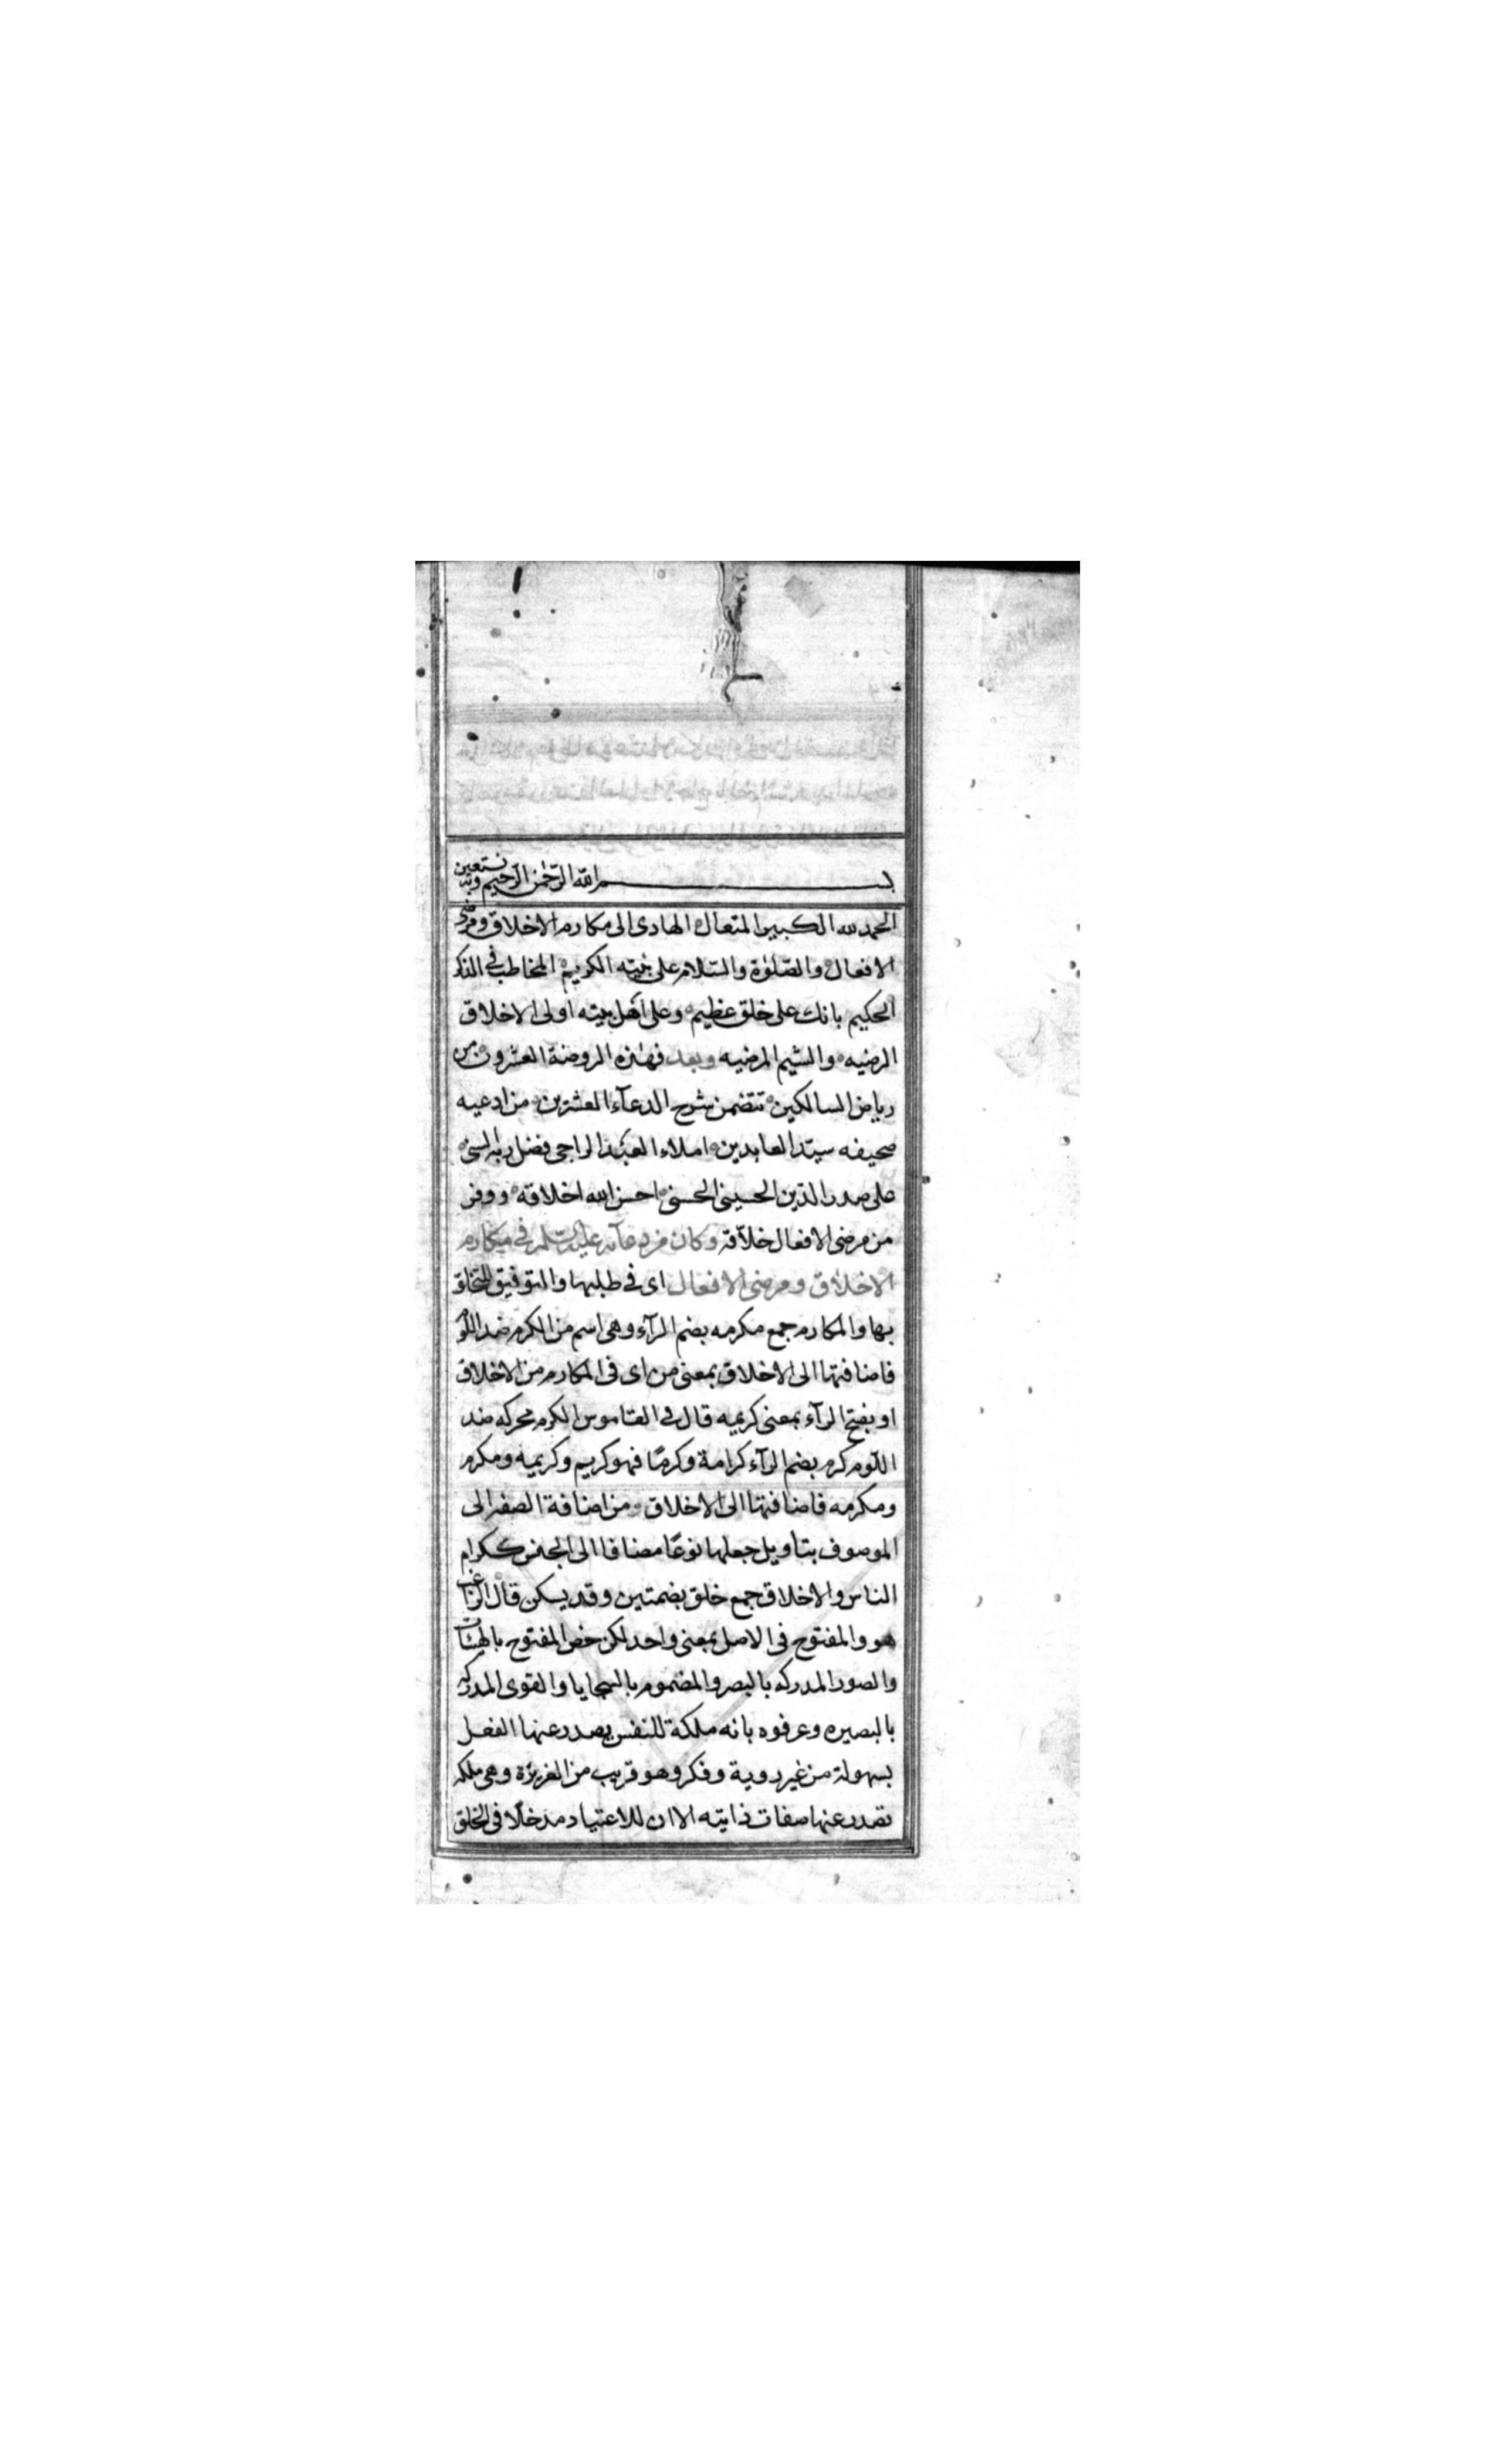 بسم الله الرحمن الرحيم وبه نستعين
الحمد لله الكبير المتعال الهادى الى مكارم الاخلاق ومرضى
الافعال والصّلوٰة والسّلام على نبيّه الكريم المخاطب فى الذكر
الحكيم بانك على خلق عظيم وعلى اهل بيته اولى الاخلاق
الرضيه والشيم المرضيه وبعد فهذه الروضة العشرون من
رياض السالكين تتضمن شرح الدعآء العشرين من ادعيه
صحيفه سيّد العابدين املاء العبد الراجى فضل ربه السنى
على صدر الدّين الحسينى الحسنى احسن الله اخلاقه ووفر
من مرضى الافعال خلاقه وكان من دعآئه عليه السّلام فى مكارم
الاخلاق ومرضى الافعال اى فى طلبها والتوفيق للتخلق
بها والمكارم جمع مكرمه بضم الرآء وهى اسم من الكرم ضد اللؤم
فاضافتها الى الاخلاق بمعنى من اى فى المكارم من الاخلاق
او بفتح الرآء بمعنى كريمه قال فى القاموس الكرم محركه ضد
اللؤم كرم بضم الرآء كرامة وكرمًا فهو كريم وكريمه ومكرم
ومكرمه فاضافتها الى الاخلاق من اضافة الصفه الى
الموصوف بتاويل جعلها نوعًا مضافا الى الجنس ككرام
الناس والاخلاق جمع خلق بضمتين وقد يسكن قال الراغب
هو والمفتوح فى الاصل بمعنى واحد لكن خص المفتوح بالهيئات
والصور المدركه بالبصر والمضموم بالسجايا والقوى المدركه
بالبصيره وعرفوه بانه ملكة للنفس يصدر عنها الفعل
بسهولة من غير روية وفكر وهو قريب من الغريزة وهى ملكه
تصدر عنها صفات ذاتيه الا ان للاعتياد مدخلًا فى الخلق